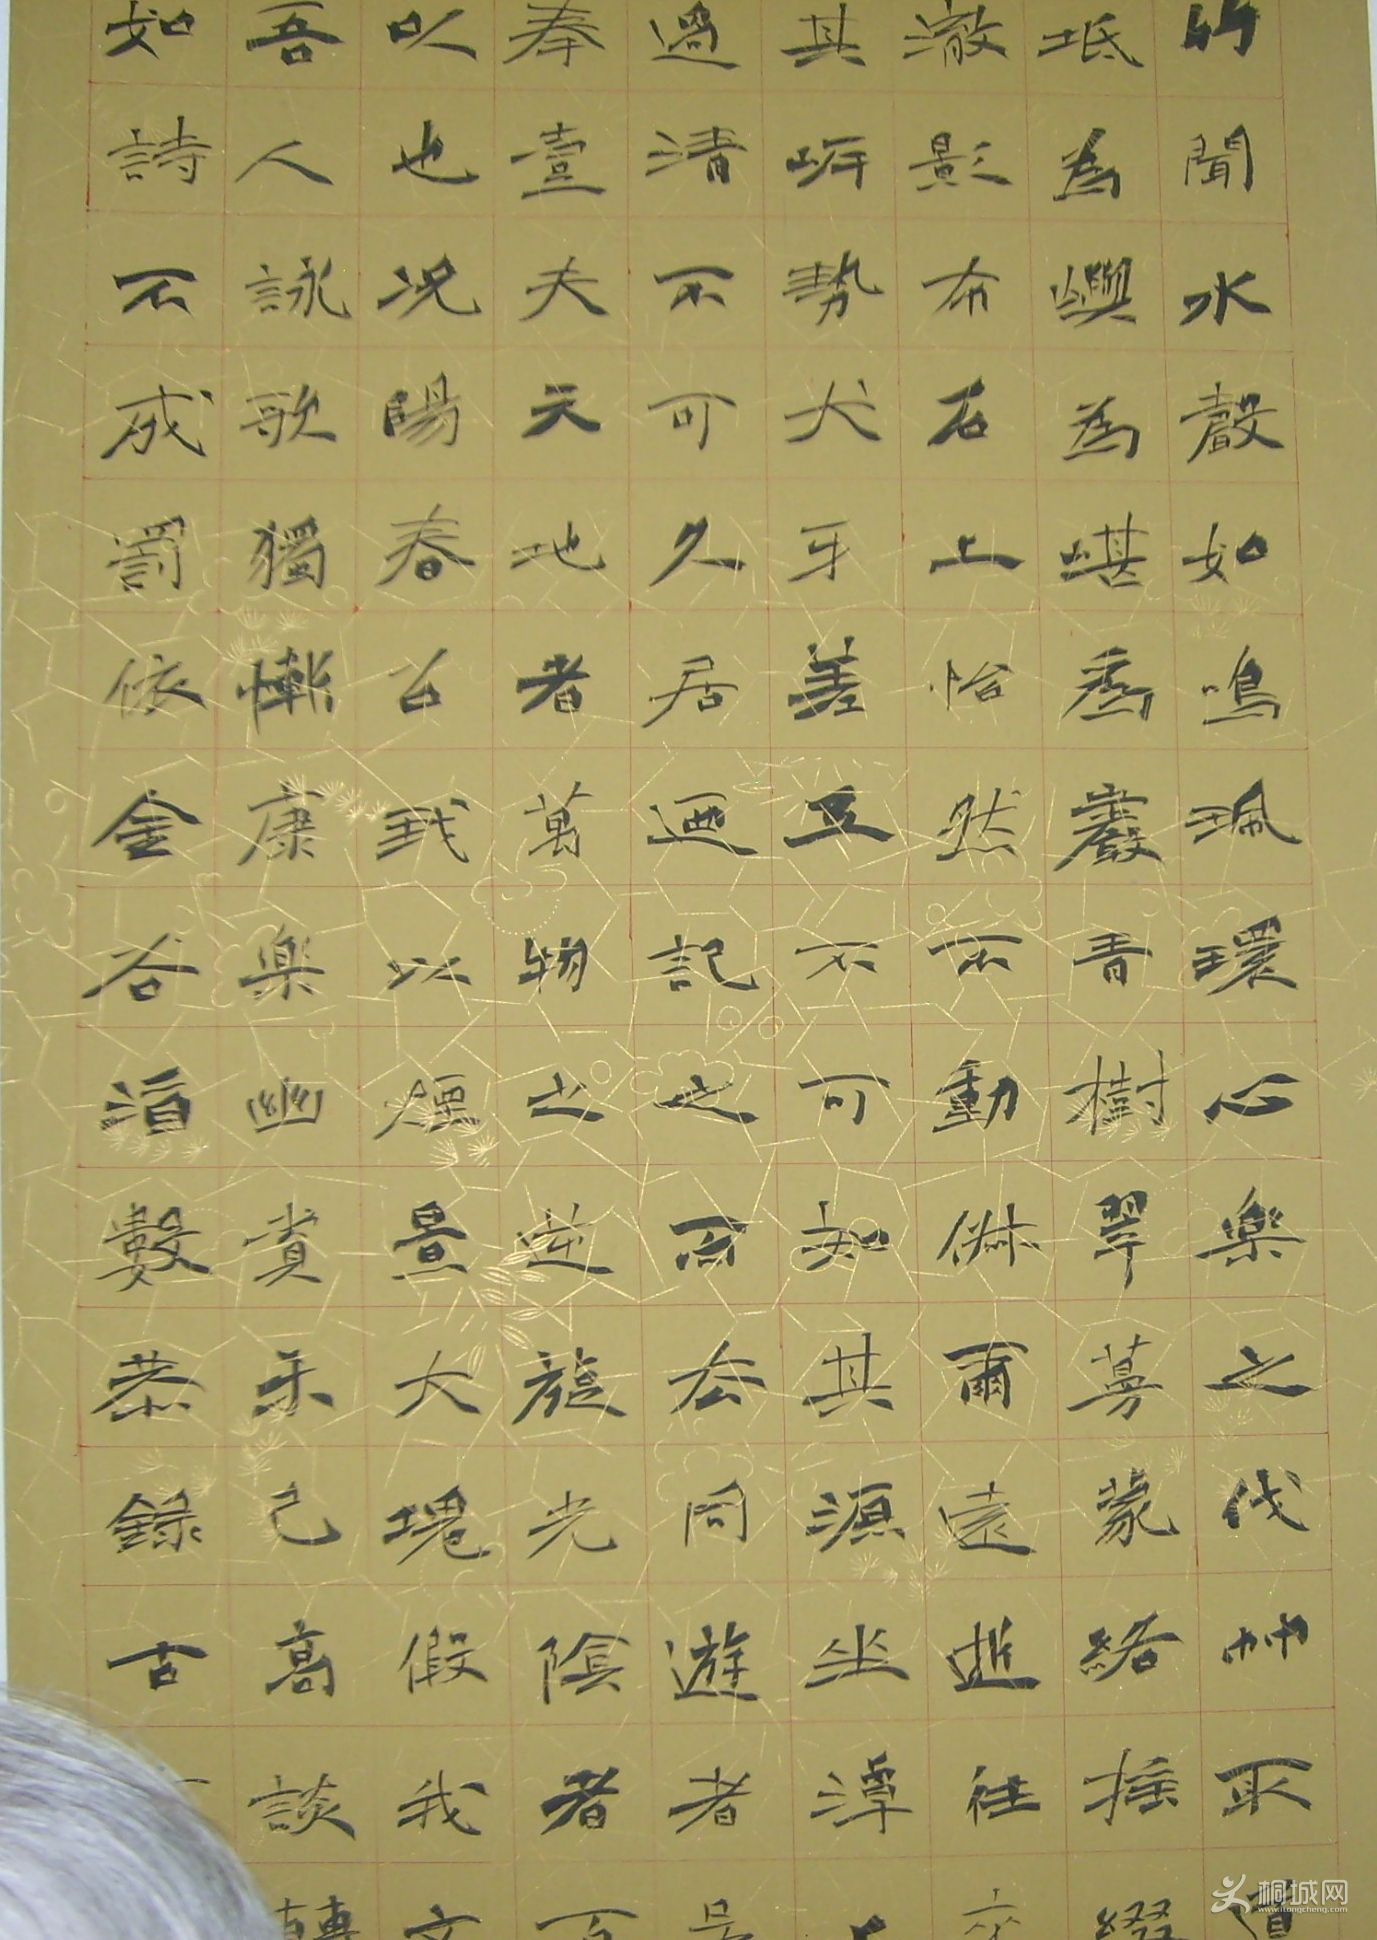 竹聞水聲如鳴珮環心樂之伐竹取道
坻為嶼為嵁為巖青樹翠蔓蒙絡搖綴
澈影布石上怡然不動俶爾遠逝往來
其岍勢犬牙差互不可知其源坐潭上
過清不可久居迺記之而去同遊者吳
奉壹夫天地者萬物之逆旅光陰者百
以也況陽春召我以煙景大塊假我文
吾人詠歌獨慚康樂幽賞未已高談轉
如詩不成罰依金谷酒數恭錄古
桐城网
www.itongcheng.com